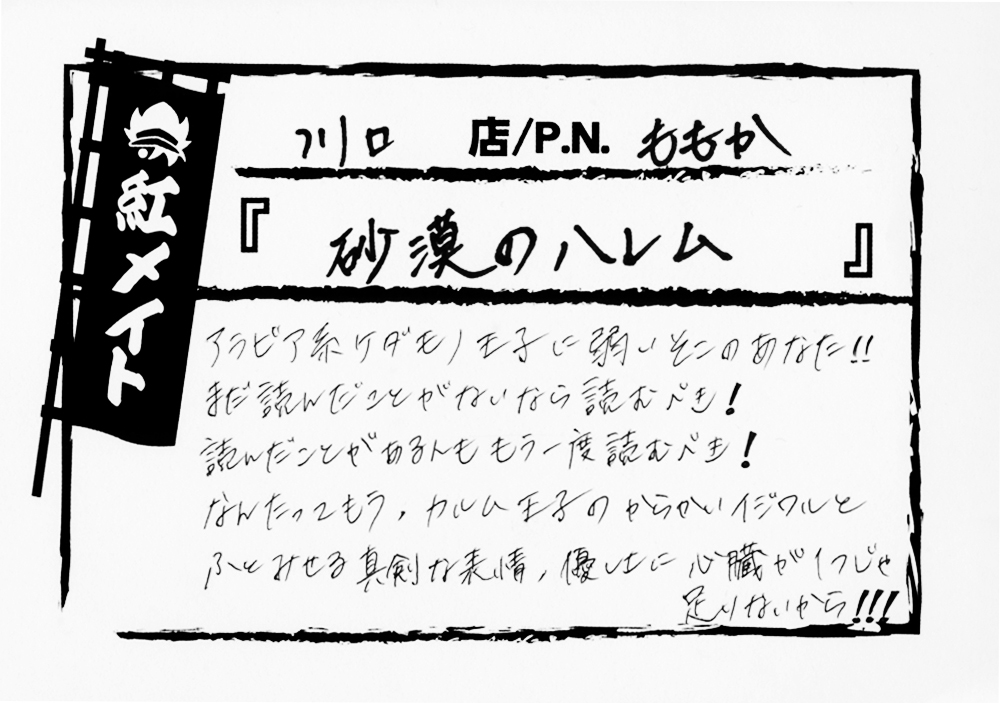 紅メイト
川口 店/P.N. ももか
『砂漠のハレム』
アラビア系ケダモノ王子に弱いそこのあなた!!
まだ読んだことがないなら読むべき!
読んだことがある人ももう一度読むべき!
なんたってもう、カルム王子のからかいイジワルと
ふとみせる真剣な表情、優しさに心臓がイつじゃ
足りないから!!!